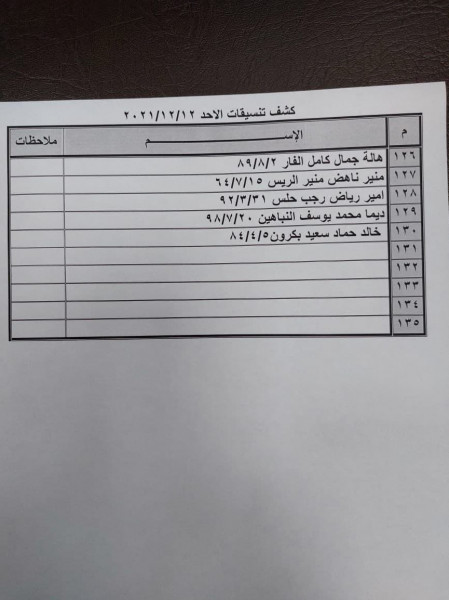 كشف تنسيقات الاحد ٢٠٢١/١٢/١٢
م الإســــــــــــــــــــــم ملاحظات
١٢٦ هالة جمال كامل الفار ٨٩/٨/٢
١٢٧ منير ناهض منير الريس ٦٤/٧/١٥
١٢٨ امير رياض رجب حلس ٩٢/٣/٣١
١٢٩ ديما محمد يوسف النباهين ٩٨/٧/٢٠
١٣٠ خالد حماد سعيد بكرون٨٤/٤/٥
١٣١
١٣٢
١٣٣
١٣٤
١٣٥